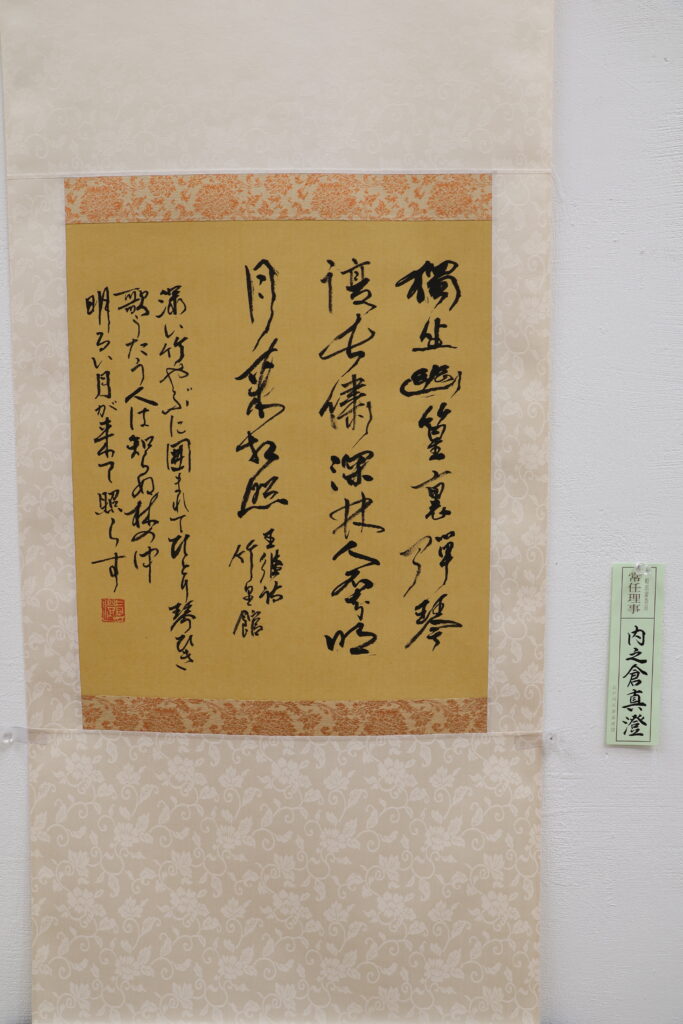 獨坐幽篁裏彈琴
復長嘯深林人不知明
月来相照
王維詩
竹里館
深い竹やぶに囲まれてひとり琴ひき
歌うたう人は知らぬ林の中
明るい月が来て照らす
常任理事
内之倉真澄